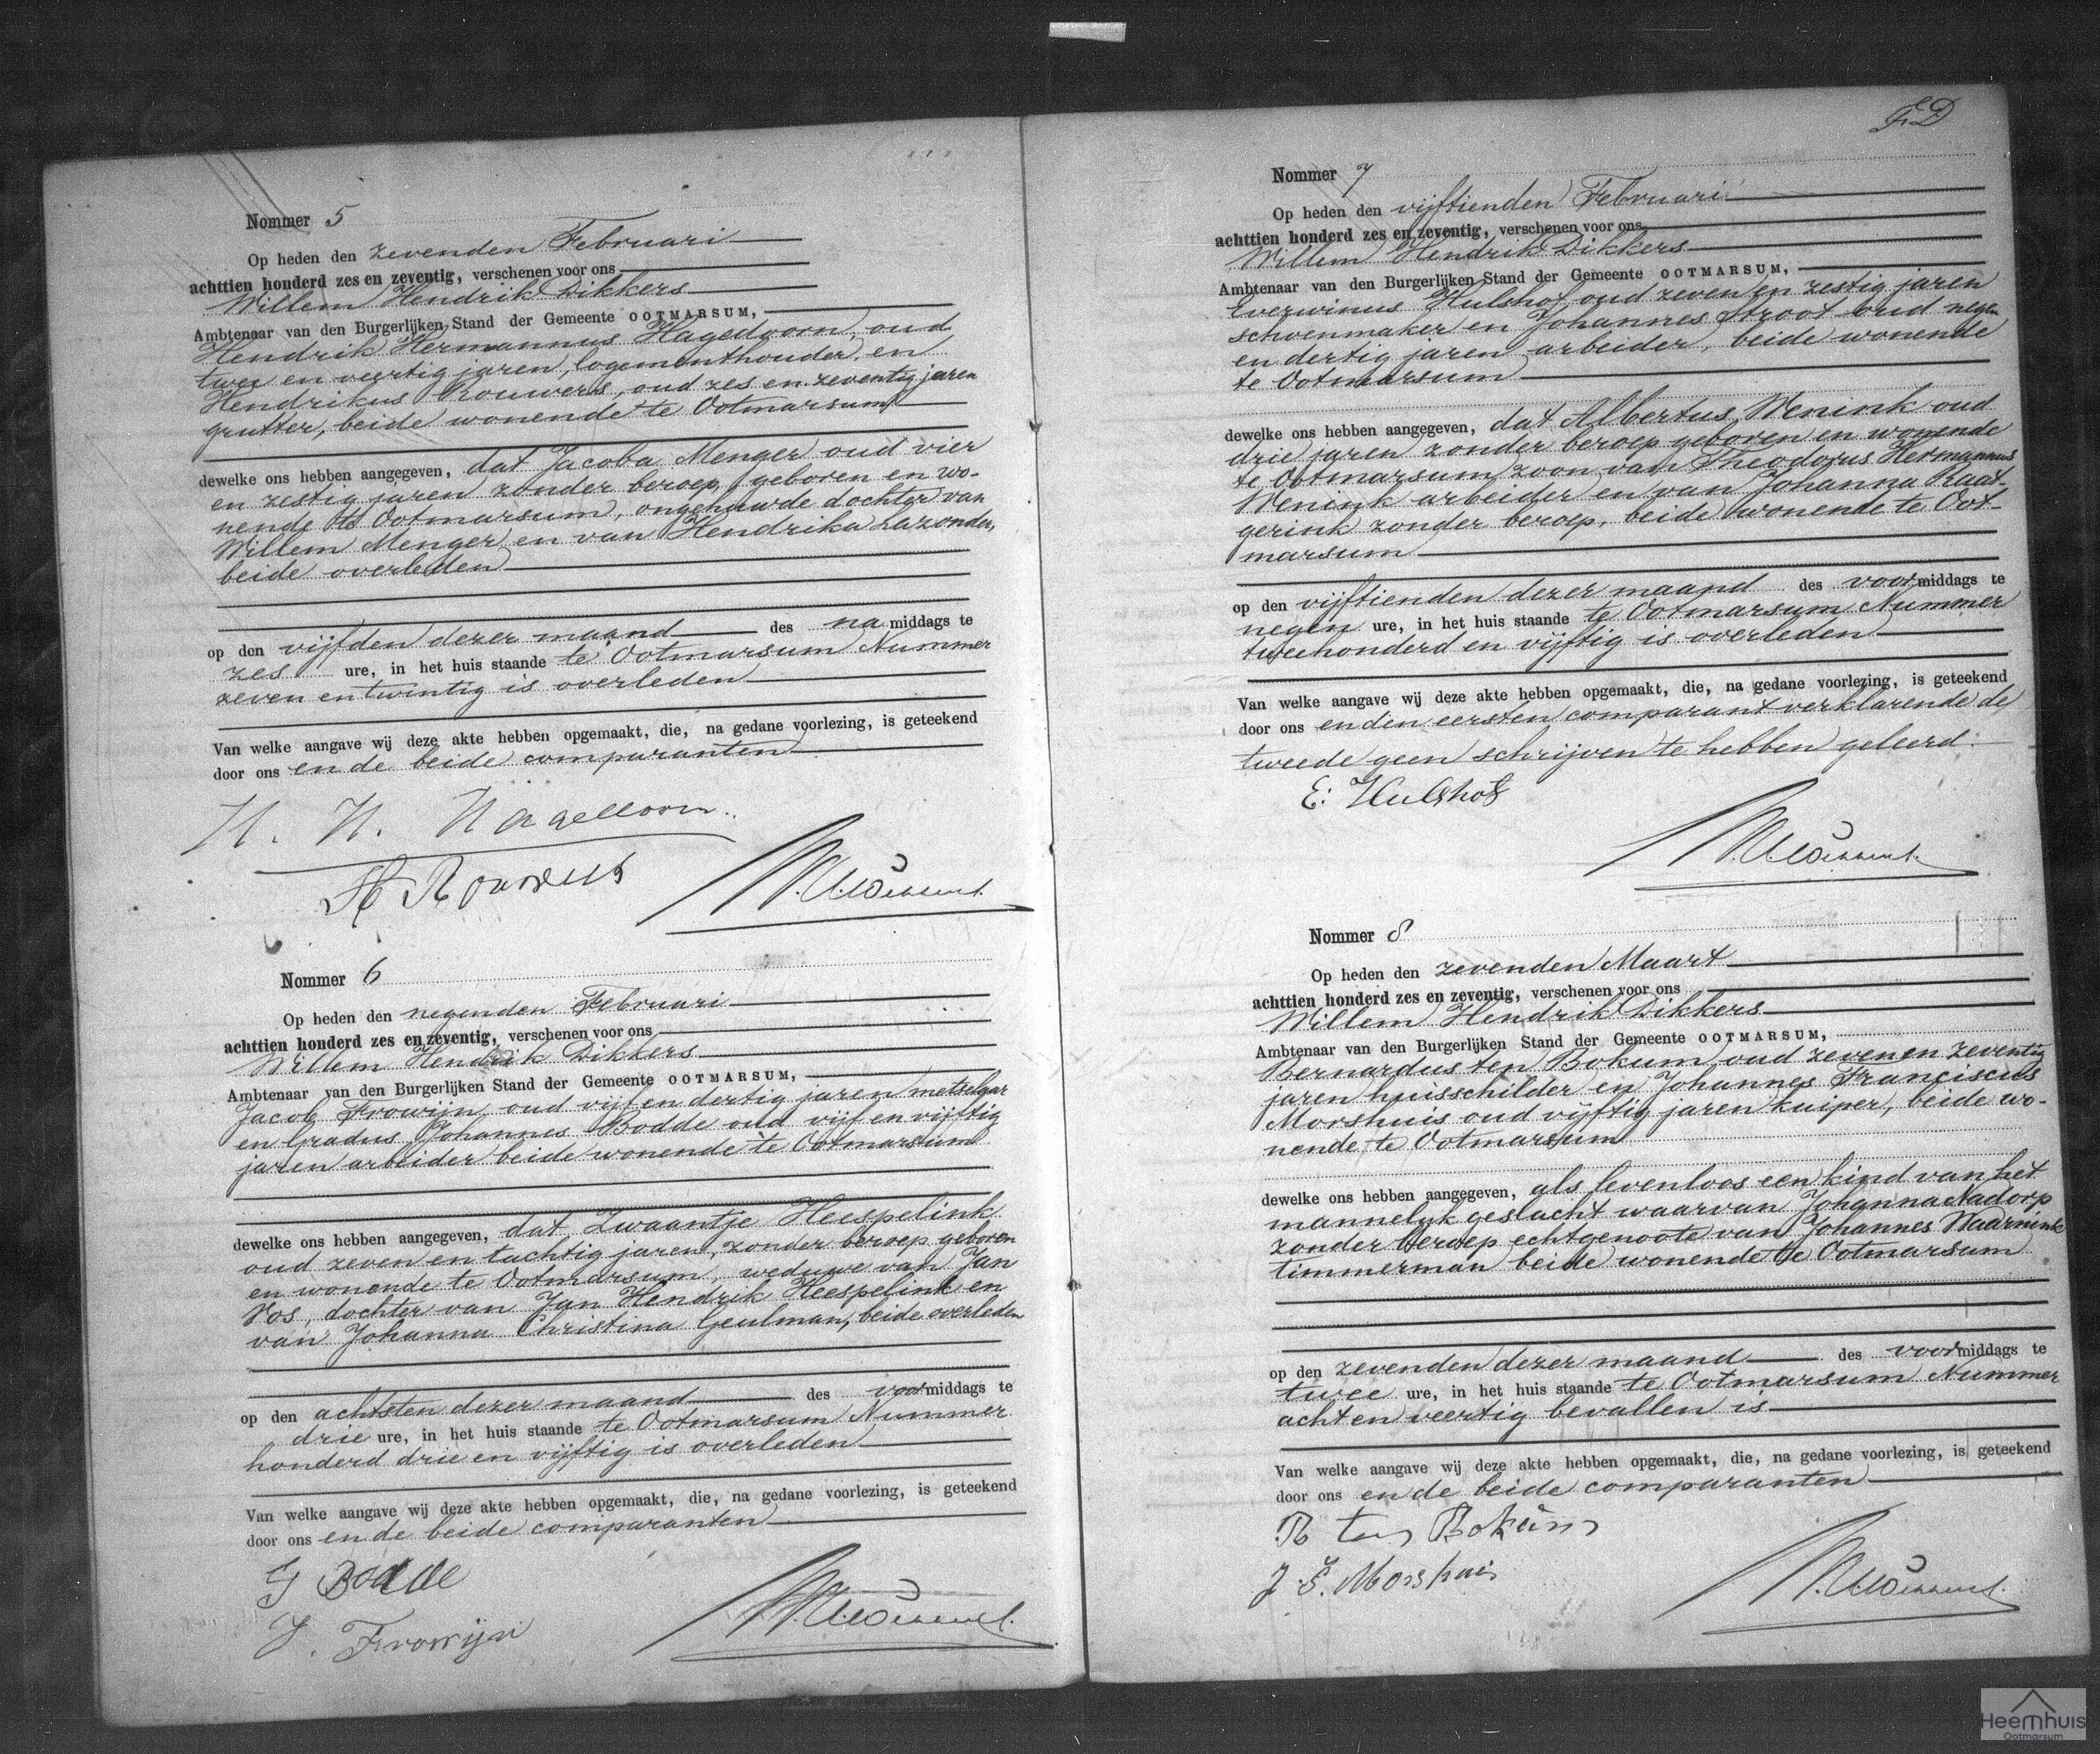 Nommer 5
Op heden den zevenden Februari
achttien honderd zes en zeventig, verschenen voor ons
Willem Hendrik Dikkers
Ambtenaar van den Burgerlijken Stand der Gemeente OOTMARSUM,
Hendrik Hermannus Hagedoorn, oud
twee en veertig jaren, logementhouder, en
Hendrikus Rouwers, oud zes en zeventig jaren
grutter, beide wonende te Ootmarsum
dewelke ons hebben aangegeven, dat Jacoba Menger oud vier
en zestig jaren zonder beroep, geboren en wo-
nende te Ootmarsum, ongehuwde dochter van
Willem Menger en van Hendrika Lazonder,
beide overleden
op den vijfden dezer maand des na middags te
zes ure, in het huis staande te Ootmarsum Nummer
zeven en twintig is overleden
Van welke aangave wij deze akte hebben opgemaakt, die, na gedane voorlezing, is geteekend
door ons en de beide comparanten
H. H. Hagedoorn.
H Rouwers
Nommer 6
Op heden den negenden Februari
achttien honderd zes en zeventig, verschenen voor ons
Willem Hendrik Dikkers
Ambtenaar van den Burgerlijken Stand der Gemeente OOTMARSUM,
Jacob Frowijn, oud vijf en dertig jaren metselaar
en Gradus Johannes Bodde oud vijf en vijftig
jaren arbeider beide wonende te Ootmarsum
dewelke ons hebben aangegeven, dat Zwaantje Heespelink
oud zeven en tachtig jaren, zonder beroep geboren
en wonende te Ootmarsum, weduwe van Jan
Vos, dochter van Jan Hendrik Heespelink en
van Johanna Christina Geulman, beide overleden
op den achtsten dezer maand des voor middags te
drie ure, in het huis staande te Ootmarsum Nummer
honderd drie en vijftig is overleden
Van welke aangave wij deze akte hebben opgemaakt, die, na gedane voorlezing, is geteekend
door ons en de beide comparanten
G Bodde
J. Frowijn
Nommer 7
Op heden den vijftienden Februari
achttien honderd zes en zeventig, verschenen voor ons
Willem Hendrik Dikkers
Ambtenaar van den Burgerlijken Stand der Gemeente OOTMARSUM,
Everwinus Hulshof, oud zeven en zestig jaren
schoenmaker en Johannes Stroot oud negen
en dertig jaren arbeider, beide wonende
te Ootmarsum
dewelke ons hebben aangegeven, dat Albertus Wenink oud
drie jaren zonder beroep geboren en wonende
te Ootmarsum, zoon van Theodorus Hermannus
Wenink arbeider en van Johanna Raat-
gerink zonder beroep, beide wonende te Oot-
marsum
op den vijftienden dezer maand des voor middags te
negen ure, in het huis staande te Ootmarsum Nummer
tweehonderd en vijftig is overleden
Van welke aangave wij deze akte hebben opgemaakt, die, na gedane voorlezing, is geteekend
door ons en den eersten comparant verklarende de
tweede geen schrijven te hebben geleerd.
E: Hulshof
Nommer 8
Op heden den zevenden Maart
achttien honderd zes en zeventig, verschenen voor ons
Willem Hendrik Dikkers
Ambtenaar van den Burgerlijken Stand der Gemeente OOTMARSUM,
Bernardus ten Bokum, oud zeven en zeventig
jaren huisschilder en Johannes Franciscus
Morshuis oud vijftig jaren kuiper, beide wo-
nende te Ootmarsum
dewelke ons hebben aangegeven, als levenloos een kind van het
mannelijk geslacht waarvan Johanna Nadorp
zonder beroep echtgenoote van Johannes Waarnink
timmerman beide wonende te Ootmarsum
op den zevenden dezer maand des voor middags te
twee ure, in het huis staande te Ootmarsum Nummer
acht en veertig bevallen is
Van welke aangave wij deze akte hebben opgemaakt, die, na gedane voorlezing, is geteekend
door ons en de beide comparanten
B ten Bokum
J. F. Morshuis
Heemhuis
Ootmarsum